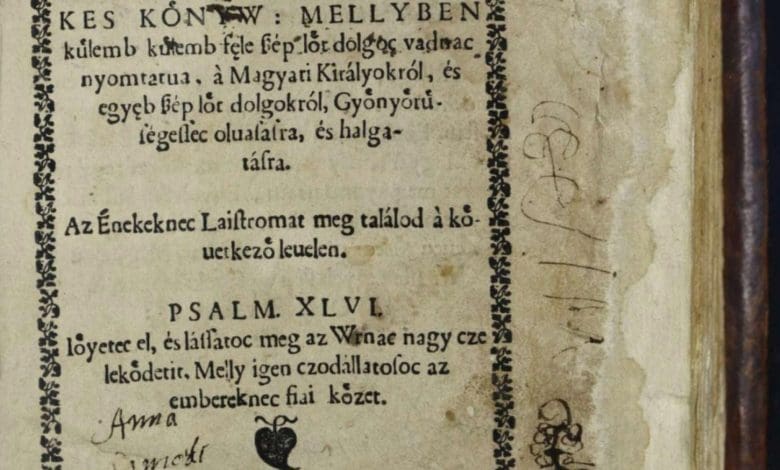 KES KÖNYW: MELLYBEN
kuͤlemb kuͤlemb fele ſzép loͤt dolgoc vadnac
nyomtatua, à Magyari Királyokról, és
egyęb ſzép loͤt dolgokról, Gyoͤnyoͤruͤ-
ſégeſſec oluaſaſra, és halga-
táſra.
Az Énekeknec Laiſtromat meg találod à koͤ-
uetkezoͤ leuelen.
PSALM. XLVI.
Ioͤyetec el, és láſſatoc meg az Wrnac nagy cze
lekoͤdetit. Melly igen czodállatoſoc az
embereknec fiai koͤzet.
Anna